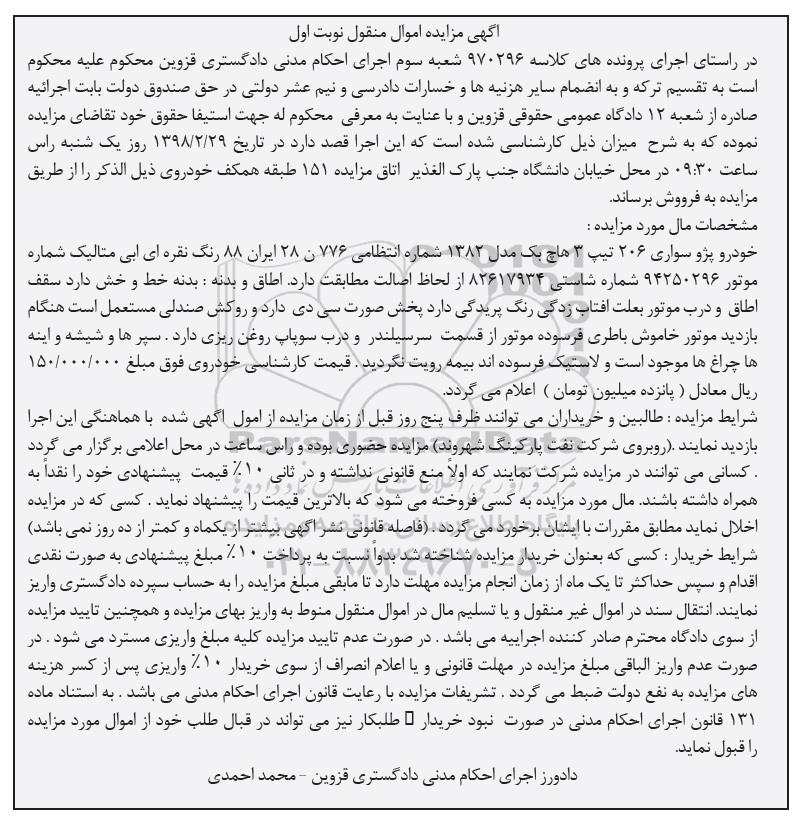 اگهی مزایده اموال منقول نوبت اول
در راستای اجرای پرونده های کلاسه ۹۷۰۲۹۶ شعبه سوم اجرای احکام مدنی دادگستری قزوین محکوم علیه محکوم
است به تقسیم ترکه و به انضمام سایر هزینه ها و خسارات دادرسی و نیم عشر دولتی در حق صندوق دولت بابت اجرائیه
صادره از شعبه ۱۲ دادگاه عمومی حقوقی قزوین و با عنایت به معرفی محکوم له جهت استیفا حقوق خود تقاضای مزایده
نموده که به شرح میزان ذیل کارشناسی شده است که این اجرا قصد دارد در تاریخ ۱۳۹۸/۲/۲۹ روز یک شنبه راس
ساعت ۰۹:۳۰ در محل خیابان دانشگاه جنب پارک الغذیر اتاق مزایده ۱۵۱ طبقه همکف خودروی ذیل الذکر را از طریق
مزایده به فرووش برساند.
مشخصات مال مورد مزایده :
خودرو پژو سواری ۲۰۶ تیپ ۳ هاچ بک مدل ۱۳۸۲ شماره انتظامی ۷۷۶ ن ۲۸ ایران ۸۸ رنگ نقره ای ابی متالیک شماره
موتور ۹۴۲۵۰۲۹۶ شماره شاستی ۸۲۶۱۷۹۳۴ از لحاظ اصالت مطابقت دارد. اطاق و بدنه : بدنه خط و خش دارد سقف
اطاق و درب موتور بعلت افتاب زدگی رنگ پریدگی دارد پخش صورت سی دی دارد و روکش صندلی مستعمل است هنگام
بازدید موتور خاموش باطری فرسوده موتور از قسمت سرسیلندر و درب سوپاپ روغن ریزی دارد . سپر ها و شیشه و اینه
ها چراغ ها موجود است و لاستیک فرسوده اند بیمه رویت نگردید . قیمت کارشناسی خودروی فوق مبلغ ۱۵۰/۰۰۰/۰۰۰
ریال معادل ( پانزده میلیون تومان ) اعلام می گردد.
شرایط مزایده : طالبین و خریداران می توانند ظرف پنج روز قبل از زمان مزایده از امول اگهی شده با هماهنگی این اجرا
بازدید نمایند .(روبروی شرکت نفت پارکینگ شهروند) مزایده حضوری بوده و راس ساعت در محل اعلامی برگزار می گردد
. کسانی می توانند در مزایده شرکت نمایند که اولاً منع قانونی نداشته و در ثانی ۱۰٪ قیمت پیشنهادی خود را نقداً به
همراه داشته باشند. مال مورد مزایده به کسی فروخته می شود که بالاترین قیمت را پیشنهاد نماید . کسی که در مزایده
اخلال نماید مطابق مقررات با ایشان برخورد می گردد. (فاصله قانونی نشر اگهی بیشتر از یکماه و کمتر از ده روز نمی باشد)
شرایط خریدار : کسی که بعنوان خریدار مزایده شناخته شد بدواً نسبت به پرداخت ۱۰٪ مبلغ پیشنهادی به صورت نقدی
اقدام و سپس حداکثر تا یک ماه از زمان انجام مزایده مهلت دارد تا مابقی مبلغ مزایده را به حساب سپرده دادگستری واریز
نمایند. انتقال سند در اموال غیر منقول و یا تسلیم مال در اموال منقول منوط به واریز بهای مزایده و همچنین تایید مزایده
از سوی دادگاه محترم صادر کننده اجراییه می باشد . در صورت عدم تایید مزایده کلیه مبلغ واریزی مسترد می شود . در
صورت عدم واریز الباقی مبلغ مزایده در مهلت قانونی و یا اعلام انصراف از سوی خریدار ۱۰٪ واریزی پس از کسر هزینه
های مزایده به نفع دولت ضبط می گردد . تشریفات مزایده با رعایت قانون اجرای احکام مدنی می باشد . به استناد ماده
۱۳۱ قانون اجرای احکام مدنی در صورت نبود خریدار طلبکار نیز می تواند در قبال طلب خود از اموال مورد مزایده
را قبول نماید.
دادورز اجرای احکام مدنی دادگستری قزوین - محمد احمدی
ParsNamadData
۰۲۱-۸۸۳۴۹۶۷۰-۵